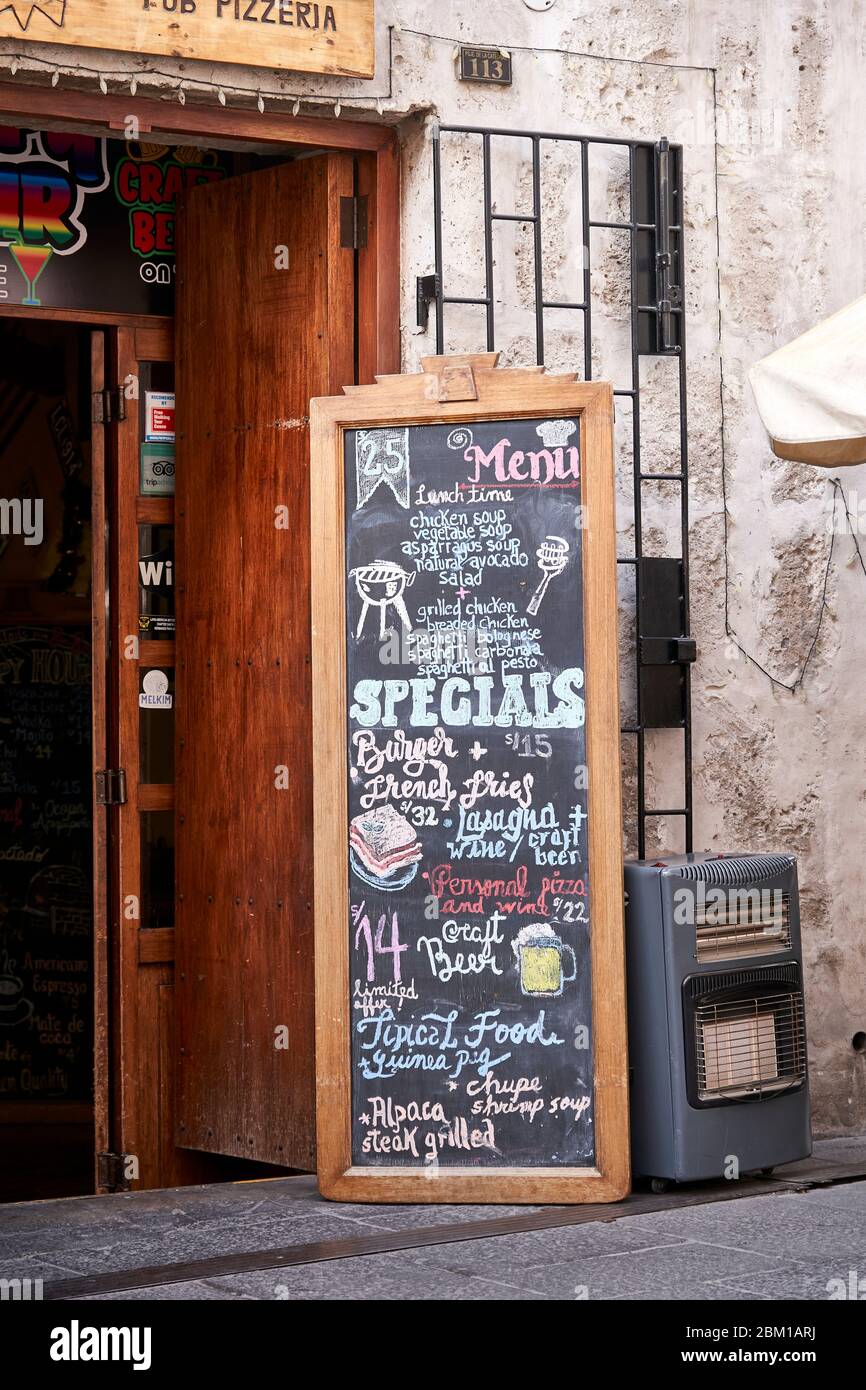 PUB PIZZERIA
113
CRAFT
BEER
ON
25
Menu
Lunch time
chicken soup
vegetable soup
asparragus soup
natural avocado
salad
+
grilled chicken
breaded chicken
spaghetti bolognese
spaghetti carbonara
spaghetti al pesto
SPECIALS
Burger + S/15
French fries
S/32 · Lasagna +
wine/craft
beer
· Personal pizza
and wine S/22
S/14
Craft
Beer
limited
offer
Tipical Food
*Guinea pig
* chupe
shrimp soup
*Alpaca
steak grilled
tripadvisor
Wi
MELKIM
Vodka
Mojito
14
15
Americano
Espresso
Mate de
coca
Quality
alamy
Image ID: 2BM1ARJ
www.alamy.com